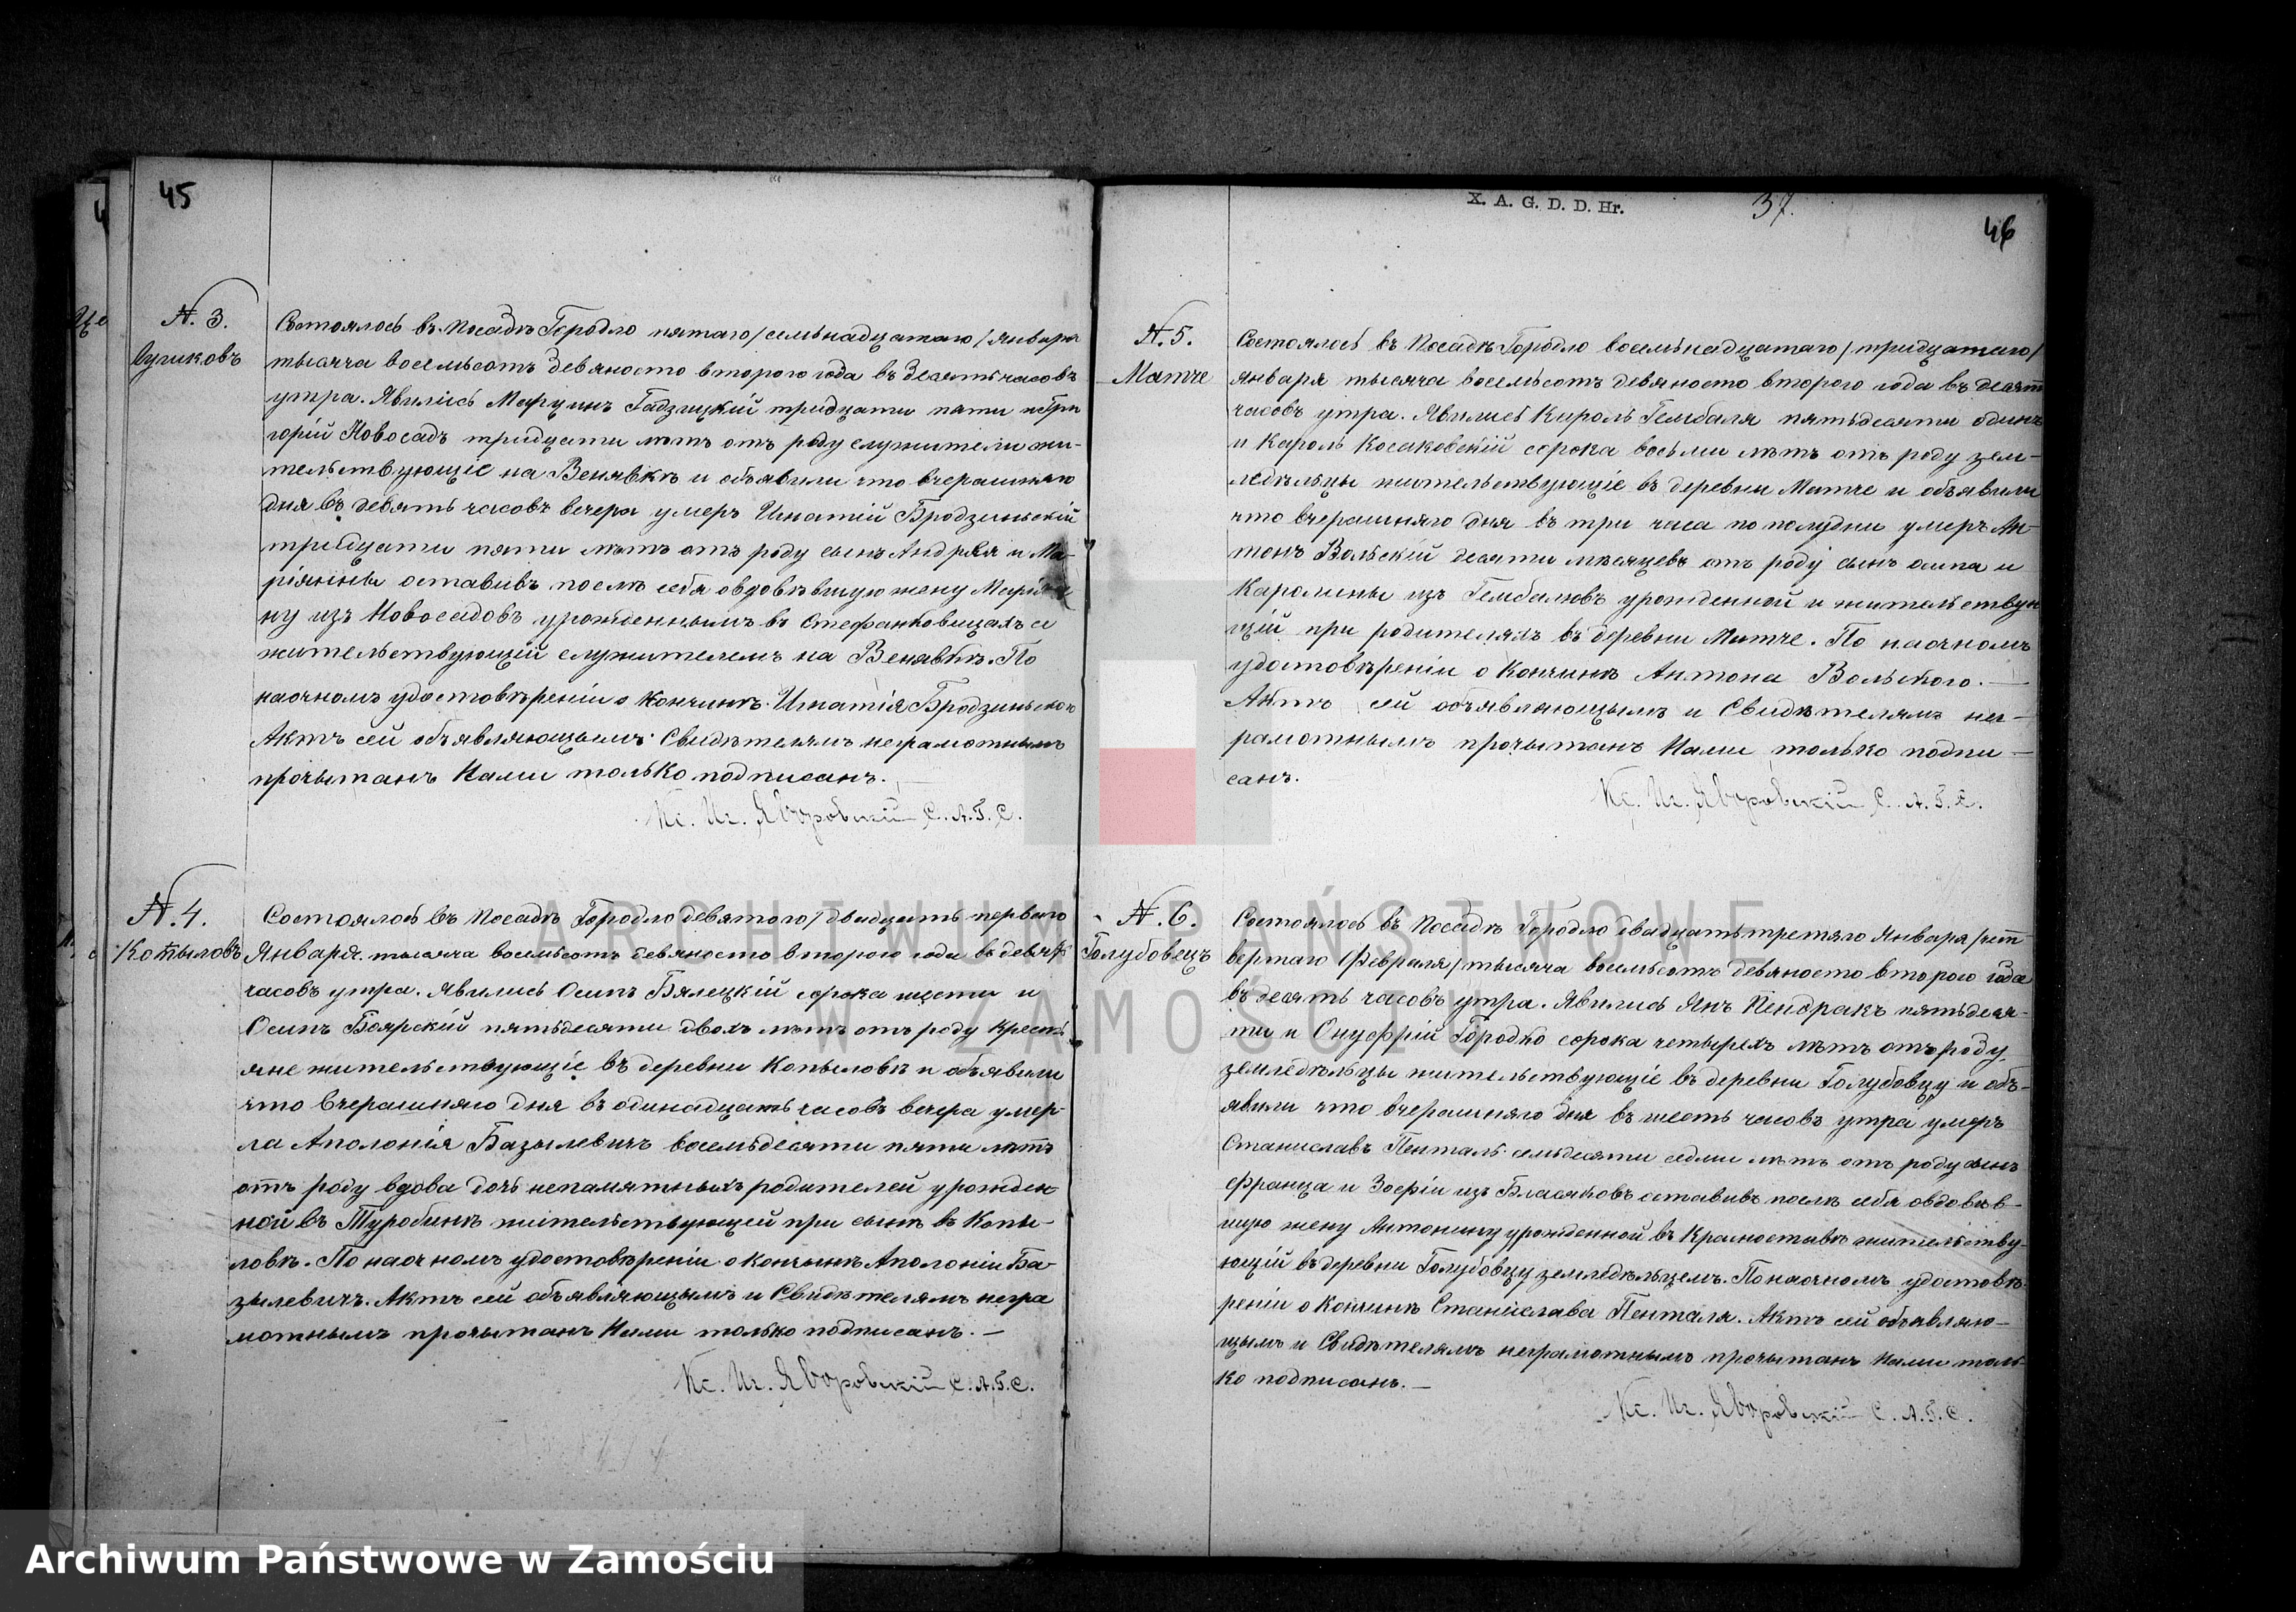 45
N. 3.
Лушковъ
Состоялось въ Посадѣ Городло пятаго /семьнадцатаго/ Января
тысяча восемьсотъ девяносто второго года въ десять часовъ
утра. Явились Марцинъ Гадзицкій тридцати пяти и Гри
горій Новосадъ тридцати лѣтъ отъ роду служители жи-
тельствующіе на Венявкѣ и объявили что вчерашняго
дня въ девять часовъ вечера умеръ Игнатій Бродзинскій
тридцати пяти лѣтъ отъ роду сынъ Андрея и Ма-
ріянны оставивъ послѣ себя овдовѣвшую жену Марiян
ну изъ Новосадовъ урожденнымъ въ Стефанковицахъ а
жительствующій служителемъ на Венявкѣ. По
наочномъ удостовѣреніи о кончинѣ Игнатія Бродзинскаго
Актъ сей объявляющымъ Свидѣтелямъ неграмотнымъ
прочытанъ Нами только подписанъ.
Кс. Иг. Яворовскій С. А. Г. С.
N. 4.
Копыловъ
Состоялось въ Посадѣ Городло девятого/ двадцать первого
Января тысяча восемьсотъ девяносто второго года въ девять
часовъ утра. Явились Осипъ Бялецкій сорока шести и
Осипъ Боярскій пятьдесяти двохъ лѣтъ отъ роду Кресть
яне жительствующіе въ деревни Копыловѣ и объявили
что вчерашняго дня въ одинадцать часовъ вечера умер-
ла Аполонія Базылевичъ восемьдесяти пяти лѣтъ
отъ роду вдова дочь непамятныхъ родителей урожден
ной въ Туробинѣ жительствующей при сынѣ въ Копы-
ловѣ. По наочномъ удостовѣреніи о кончынѣ Аполоніи Ба-
зылевичъ. Актъ сей объявляющымъ и Свидѣтелямъ негра
мотнымъ прочытанъ Нами только подписанъ. —
Кс. Иг. Яворовскій С. А. Г. С.
X. A. G. D. D. Hr.
37.
46
N. 5.
Матче
Состоялось въ Посадѣ Городло восемьнадцатаго /тридцатаго/
Января тысяча восемьсотъ девяносто второго года въ десять
часовъ утра. Явились Кароль Гембаля пятьдесяти одинъ
и Кароль Косаковскій сорока восьми лѣтъ отъ роду зем-
ледѣльцы жительствующіе въ деревни Матче и объявили
что вчерашняго дня въ три часа по полудни умеръ Ан-
тонъ Вольскій десяти мѣсяцевъ отъ роду сынъ осипа и
Каролины изъ Гембалювъ урожденной и жительствую
щій при родителяхъ въ деревни Матче. По наочномъ
удостовѣреніи о Кончинѣ Антона Вольского. —
Актъ сей объявляющымъ и Свидѣтелямъ нег-
рамотнымъ прочытанъ Нами только подпи-
санъ.
Кс. Иг. Яворовскій С. А. Г. С.
N. 6.
Голубовецъ
Состоялось въ Посадѣ Городло двадцатьтретяго Января /чет-
вертаго Февраля/ тысяча восемьсотъ девяносто второго года
въ десять часовъ утра. Явились Янъ Кендракъ пятьдеся-
ти и Онуфрій Городко сорока четырехъ лѣтъ отъ роду
земледѣльцы жительствующіе въ деревни Голубовцу и объ-
явили что вчерашняго дня въ шесть часовъ утра умеръ
Станиславъ Пенталь семьдесяти седми лѣтъ отъ роду сынъ
Франца и Зофіи изъ оставивъ послѣ себя овдовѣв-
шую жену Антонину урожденной въ Красноставѣ жительству-
ющій въ деревни Голубовцу земледѣльцемъ. По наочномъ удостовѣ-
реніи о Кончинѣ Станислава Пенталя. Актъ сей объявляю-
щымъ и Свидѣтелямъ неграмотнымъ прочытанъ Нами толь-
ко подписанъ. —
Кс. Иг. Яворовскій С. А. Г. С.
ARCHIWUM PAŃSTWOWE
W ZAMOŚCIU
Archiwum Państwowe w Zamościu